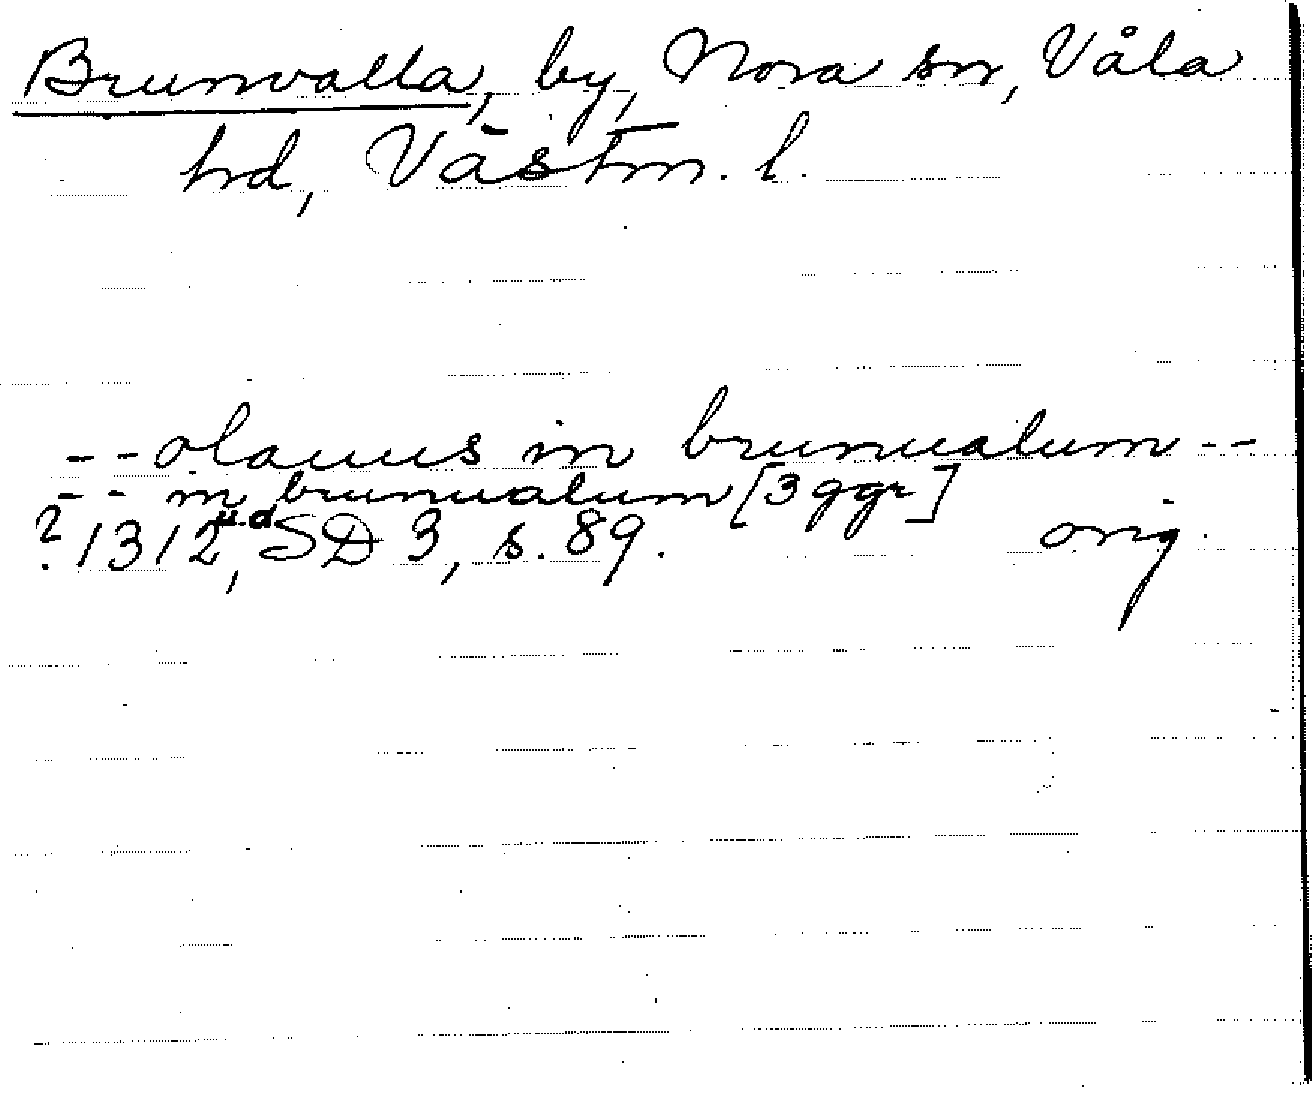 Brunvalla, by, Nora sn, Våla
hd, Västm. l.
--olauus in brunualum--
-- in brunualum [3 ggr]
? 1312 u.d., SD 3, s. 89. orig.